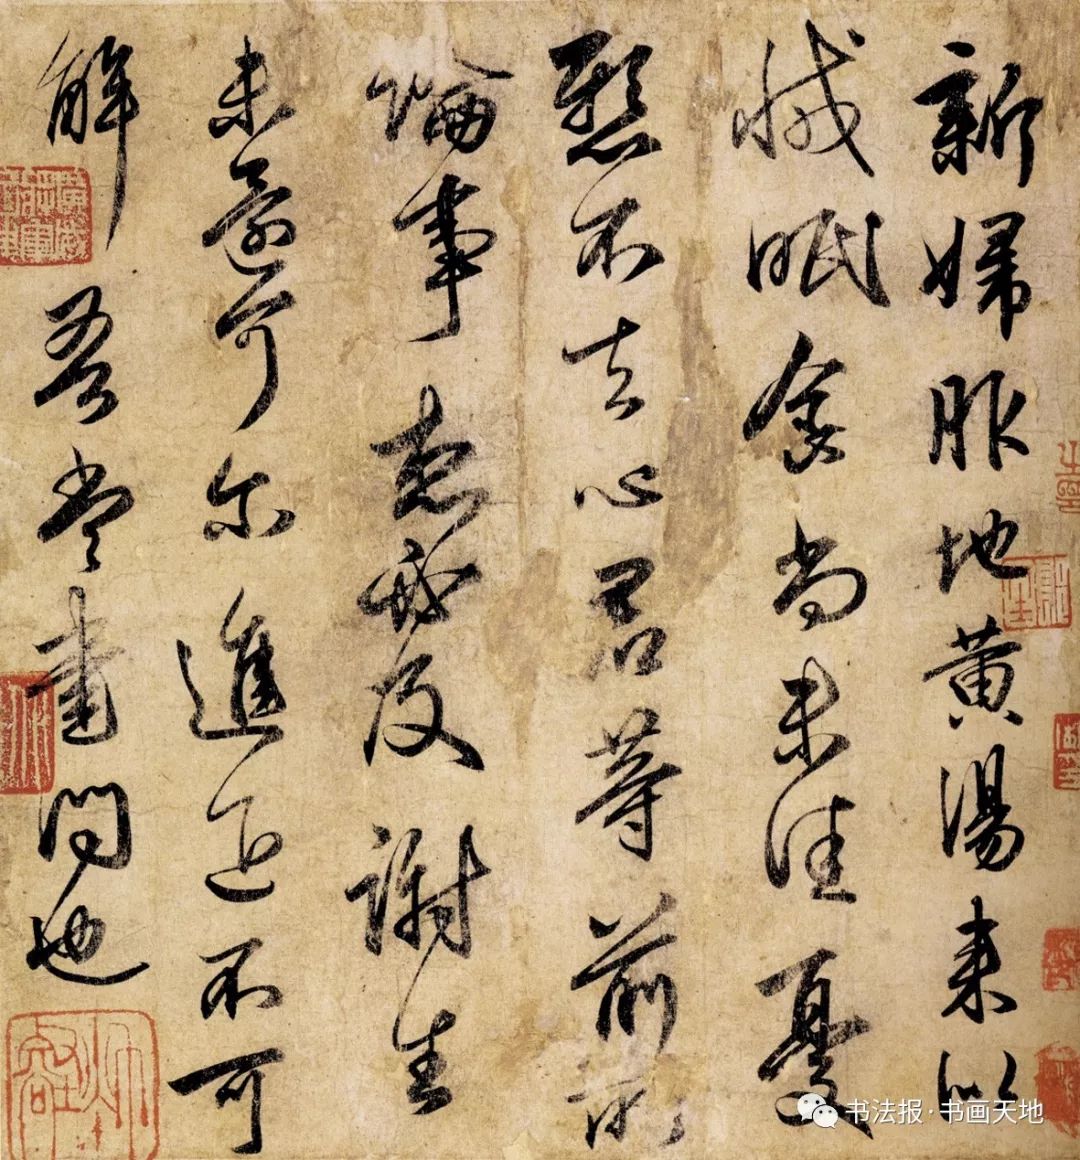 新婦服地黄湯来似
減眠食尚未佳憂
懸不去心君等前所
論事想必及謝生
未還可尔進退不可
解吾當書問也
书法报·书画天地